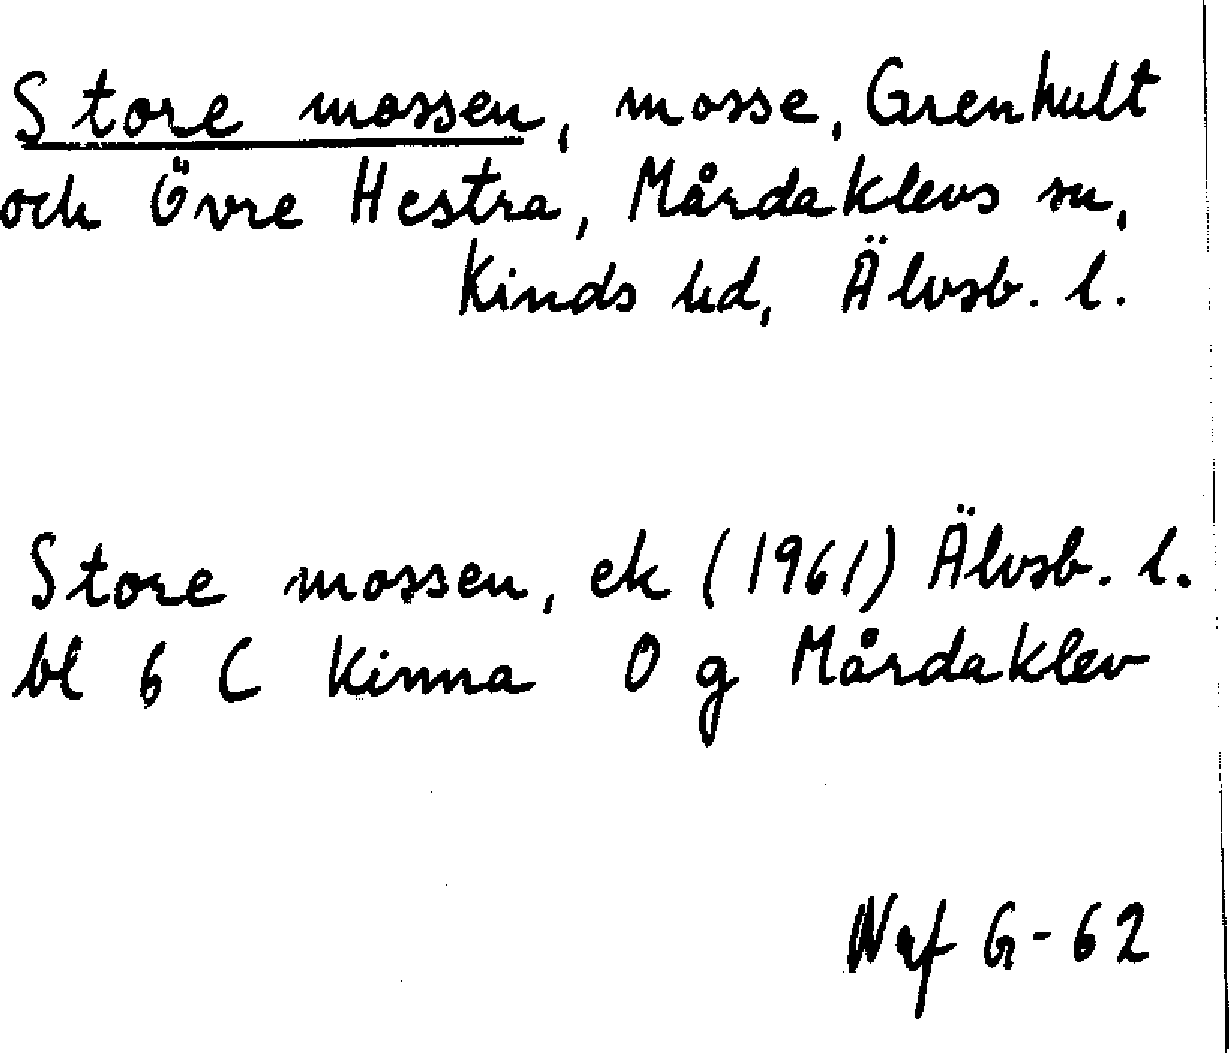 Store mossen, mosse, Grenhult
och Övre Hestra, Mårdaklevs sn,
Kinds hd, Älvsb. l.
Store mossen, ek (1961) Älvsb. l.
bl 6 C Kinna O g Mårdaklev
Naf G-62